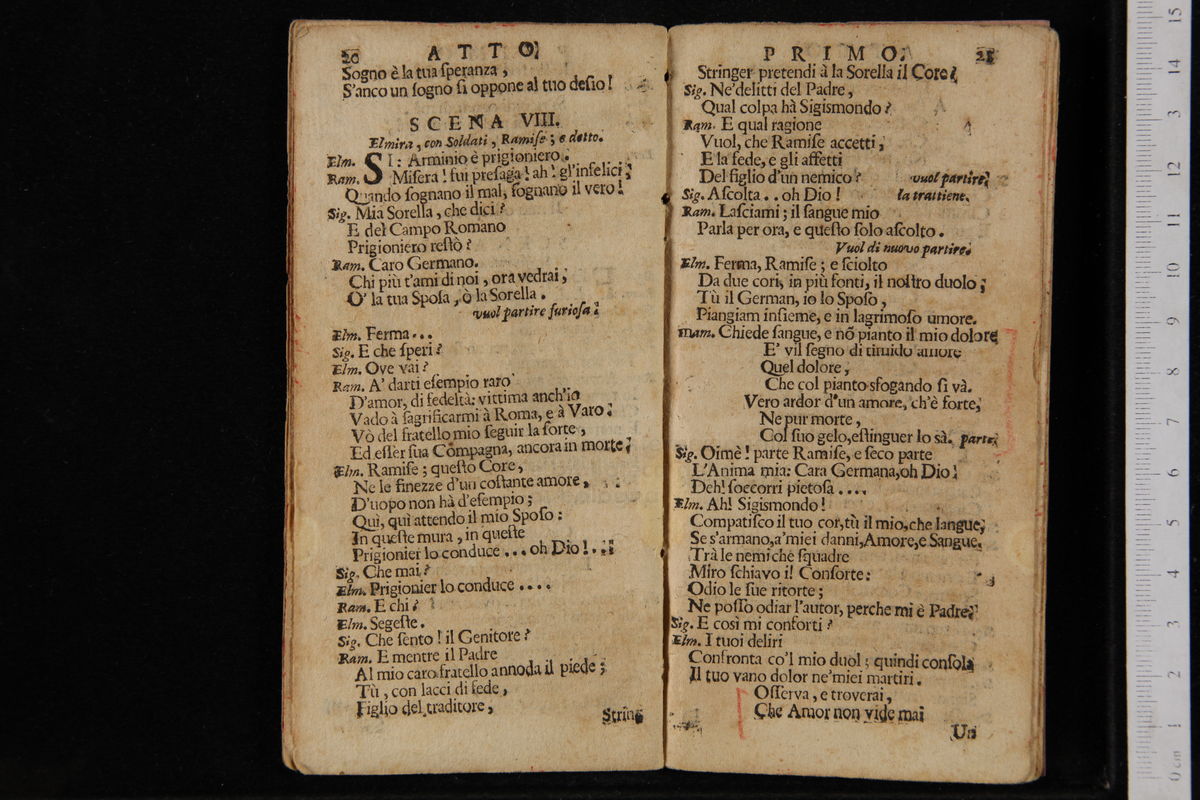 20 ATTO
Sogno è la tua ſperanza,
S'anco un ſogno ſi oppone al tuo deſio!
SCENA VIII.
Elmira, con Soldati, Ramiſe; e detto.
Elm. SI: Arminio è prigioniero.
Ram. Miſera! fui preſaga! ah! gl'infelici;
Quando ſognano il mal, ſognano il vero!
Sig. Mia Sorella, che dici?
E del Campo Romano
Prigioniero reſtò?
Ram. Caro Germano.
Chi più t'ami di noi, ora vedrai,
O' la tua Spoſa, ò la Sorella.
vuol partire furioſa:
Elm. Ferma...
Sig. E che ſperi?
Elm. Ove vai?
Ram. A' darti eſempio raro
D'amor, di fedeltà: vittima anch'io
Vado à ſagrificarmi à Roma, e à Varo:
Vò del fratello mio ſeguir la ſorte,
Ed eſſer ſua Compagna, ancora in morte;
Elm. Ramiſe; queſto Core,
Ne le finezze d'un coſtante amore,
D'uopo non hà d'eſempio;
Quì, quì attendo il mio Spoſo:
In queſte mura, in queſte
Prigionier lo conduce... oh Dio!...
Sig. Che mai?
Elm. Prigionier lo conduce....
Ram. E chi?
Elm. Segeſte.
Sig. Che ſento! il Genitore?
Ram. E mentre il Padre
Al mio caro fratello annoda il piede;
Tù, con lacci di fede,
Figlio del traditore,
String
PRIMO. 21
Stringer pretendi à la Sorella il Core?
Sig. Ne'delitti del Padre,
Qual colpa hà Sigismondo?
Ram. E qual ragione
Vuol, che Ramiſe accetti,
E la fede, e gli affetti
Del figlio d'un nemico? vuol partire;
Sig. Aſcolta.. oh Dio! la trattiene.
Ram. Laſciami; il ſangue mio
Parla per ora, e queſto ſolo aſcolto.
Vuol di nuovo partire.
Elm. Ferma, Ramiſe; e ſciolto
Da due cori, in più fonti, il noſtro duolo;
Tù il German, io lo Spoſo,
Piangiam inſieme, e in lagrimoſo umore.
Ram. Chiede ſangue, e nõ pianto il mio dolore
E' vil ſegno di timido amore
Quel dolore,
Che col pianto sfogando ſi và.
Vero ardor d'un amore, ch'è forte,
Ne pur morte,
Col ſuo gelo, eſtinguer lo sà. parte;
Sig. Oimè! parte Ramiſe, e ſeco parte
L'Anima mia: Cara Germana, oh Dio!
Deh! ſoccorri pietoſa....
Elm. Ah! Sigismondo!
Compatiſco il tuo cor, tù il mio, che langue;
Se s'armano, a'miei danni, Amore, e Sangue.
Trà le nemiche ſquadre
Miro ſchiavo il Conſorte:
Odio le ſue ritorte;
Ne poſſo odiar l'autor, perche mi è Padre;
Sig. E così mi conforti?
Elm. I tuoi deliri
Confronta co'l mio duol; quindi conſola
Il tuo vano dolor ne'miei martiri.
Oſſerva, e troverai,
Che Amor non vide mai
Un
15
14
13
12
11
10
9
8
7
6
5
4
3
2
1
0 cm